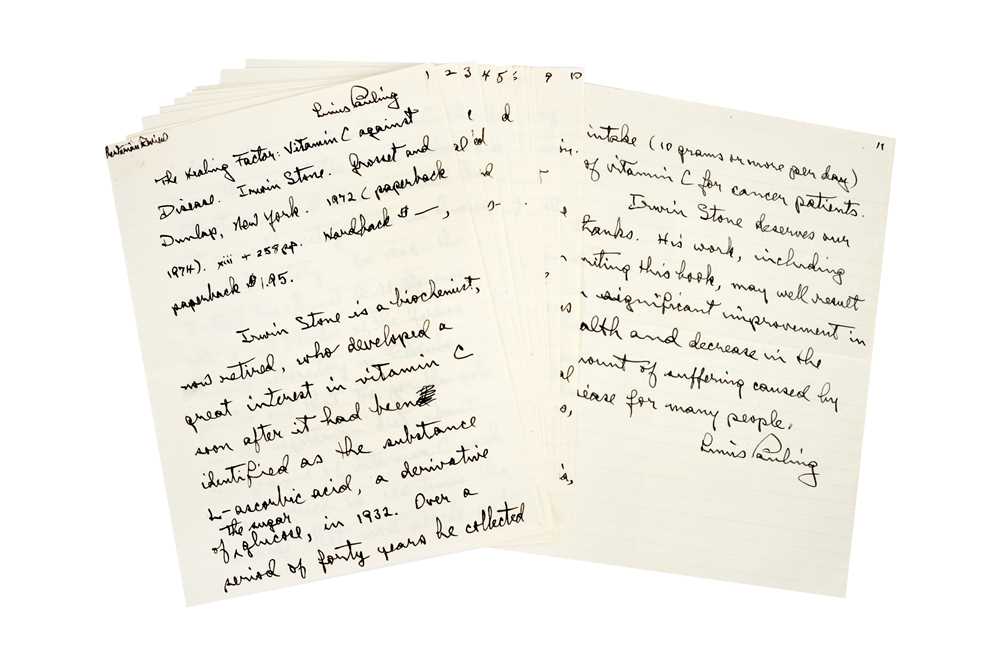 1 2 3 4 5 9 10
Linus Pauling
The Healing Factor: Vitamin C against
Disease. Irwin Stone. Grosset and
Dunlap, New York. 1972 (paperback
1974). xiii + 258 pp. Hardback $ —,
paperback $1.95.
Irwin Stone is a biochemist,
now retired, who developed a
great interest in vitamin C
soon after it had been
identified as the substance
L-ascorbic acid, a derivative
the sugar
of glucose, in 1932. Over a
period of forty years he collected
11
intake (10 grams or more per day)
of vitamin C for cancer patients.
Irwin Stone deserves our
thanks. His work, including
writing this book, may well result
significant improvement in
alth and decrease in the
mount of suffering caused by
sease for many people.
Linus Pauling